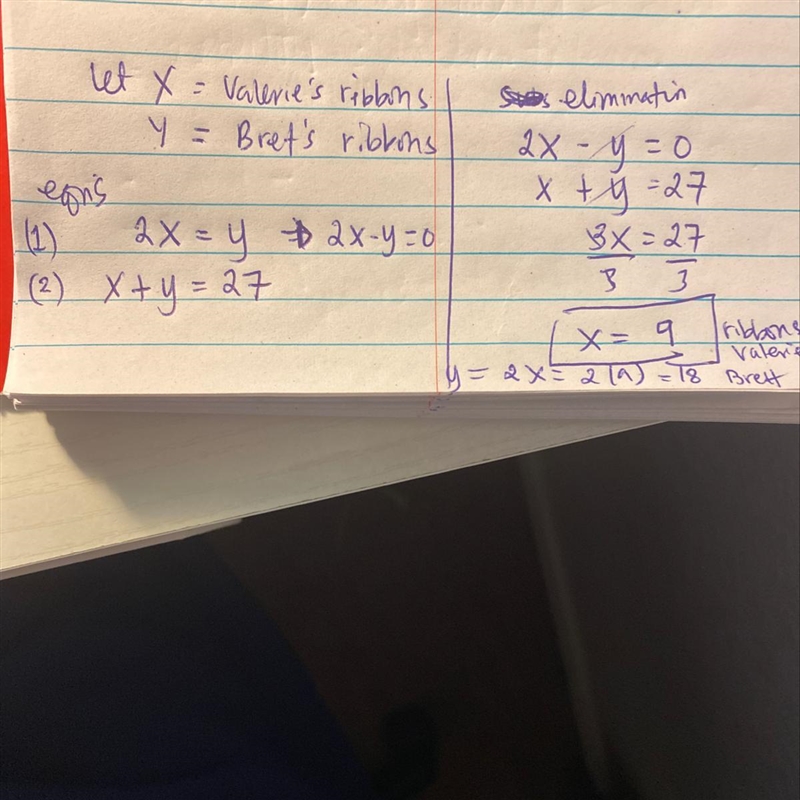 let X = Valerie's ribbons
Y = Bret's ribbons
eqn's
(1) 2X = y → 2x-y=0
(2) x+y = 27
elimmatin
2X - y = 0
x + y = 27
3x = 27
3 3
x = 9 ribbons
Valerie
y = 2x = 2(9) = 18 Brett